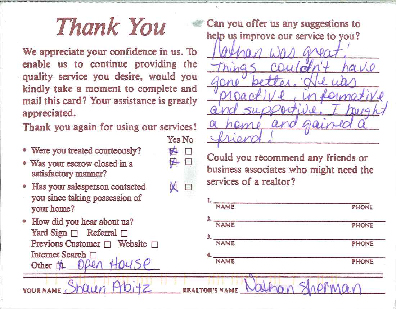 Thank You
We appreciate your confidence in us. To
enable us to continue providing the
quality service you desire, would you
kindly take a moment to complete and
mail this card? Your assistance is greatly
appreciated.
Thank you again for using our services!
Yes No
• Were you treated courteously?
• Was your escrow closed in a
satisfactory manner?
• Has your salesperson contacted
you since taking possession of
your home?
• How did you hear about us?
Yard Sign □ Referral □
Previous Customer □ Website □
Internet Search □
Other Open House
Can you offer us any suggestions to
help us improve our service to you?
Nathan was great!
Things couldn't have
gone better. He was
proactive, informative
and supportive. I bought
a home and gained a
friend!
Could you recommend any friends or
business associates who might need the
services of a realtor?
1.
NAME PHONE
2.
NAME PHONE
3.
NAME PHONE
4.
NAME PHONE
YOUR NAME Shawn Abitz REALTOR'S NAME Nathan Sherman